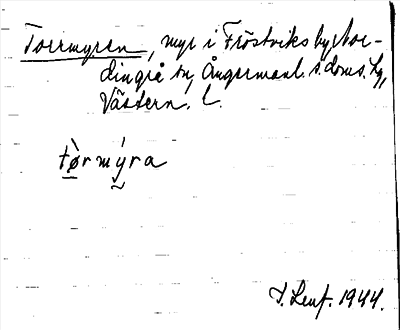 Torrmyren, myr i Fröstviks by, Nor-
dingrå sn, Ångermanl. s. doms. hg,
Västern. l.
tòrmýra
J. Lenf. 1944.